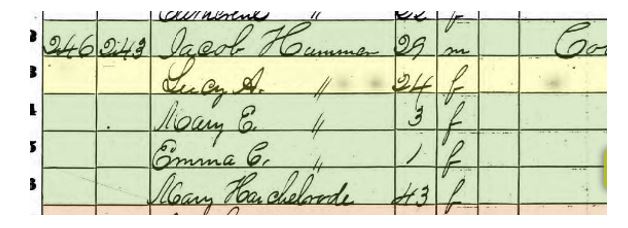 Catherine " 22 f
246 243 Jacob Hamman 29 m Coo
Lucy A. " 24 f
Mary E. " 3 f
Emma C. " 1 f
Mary Harchelrode 43 f